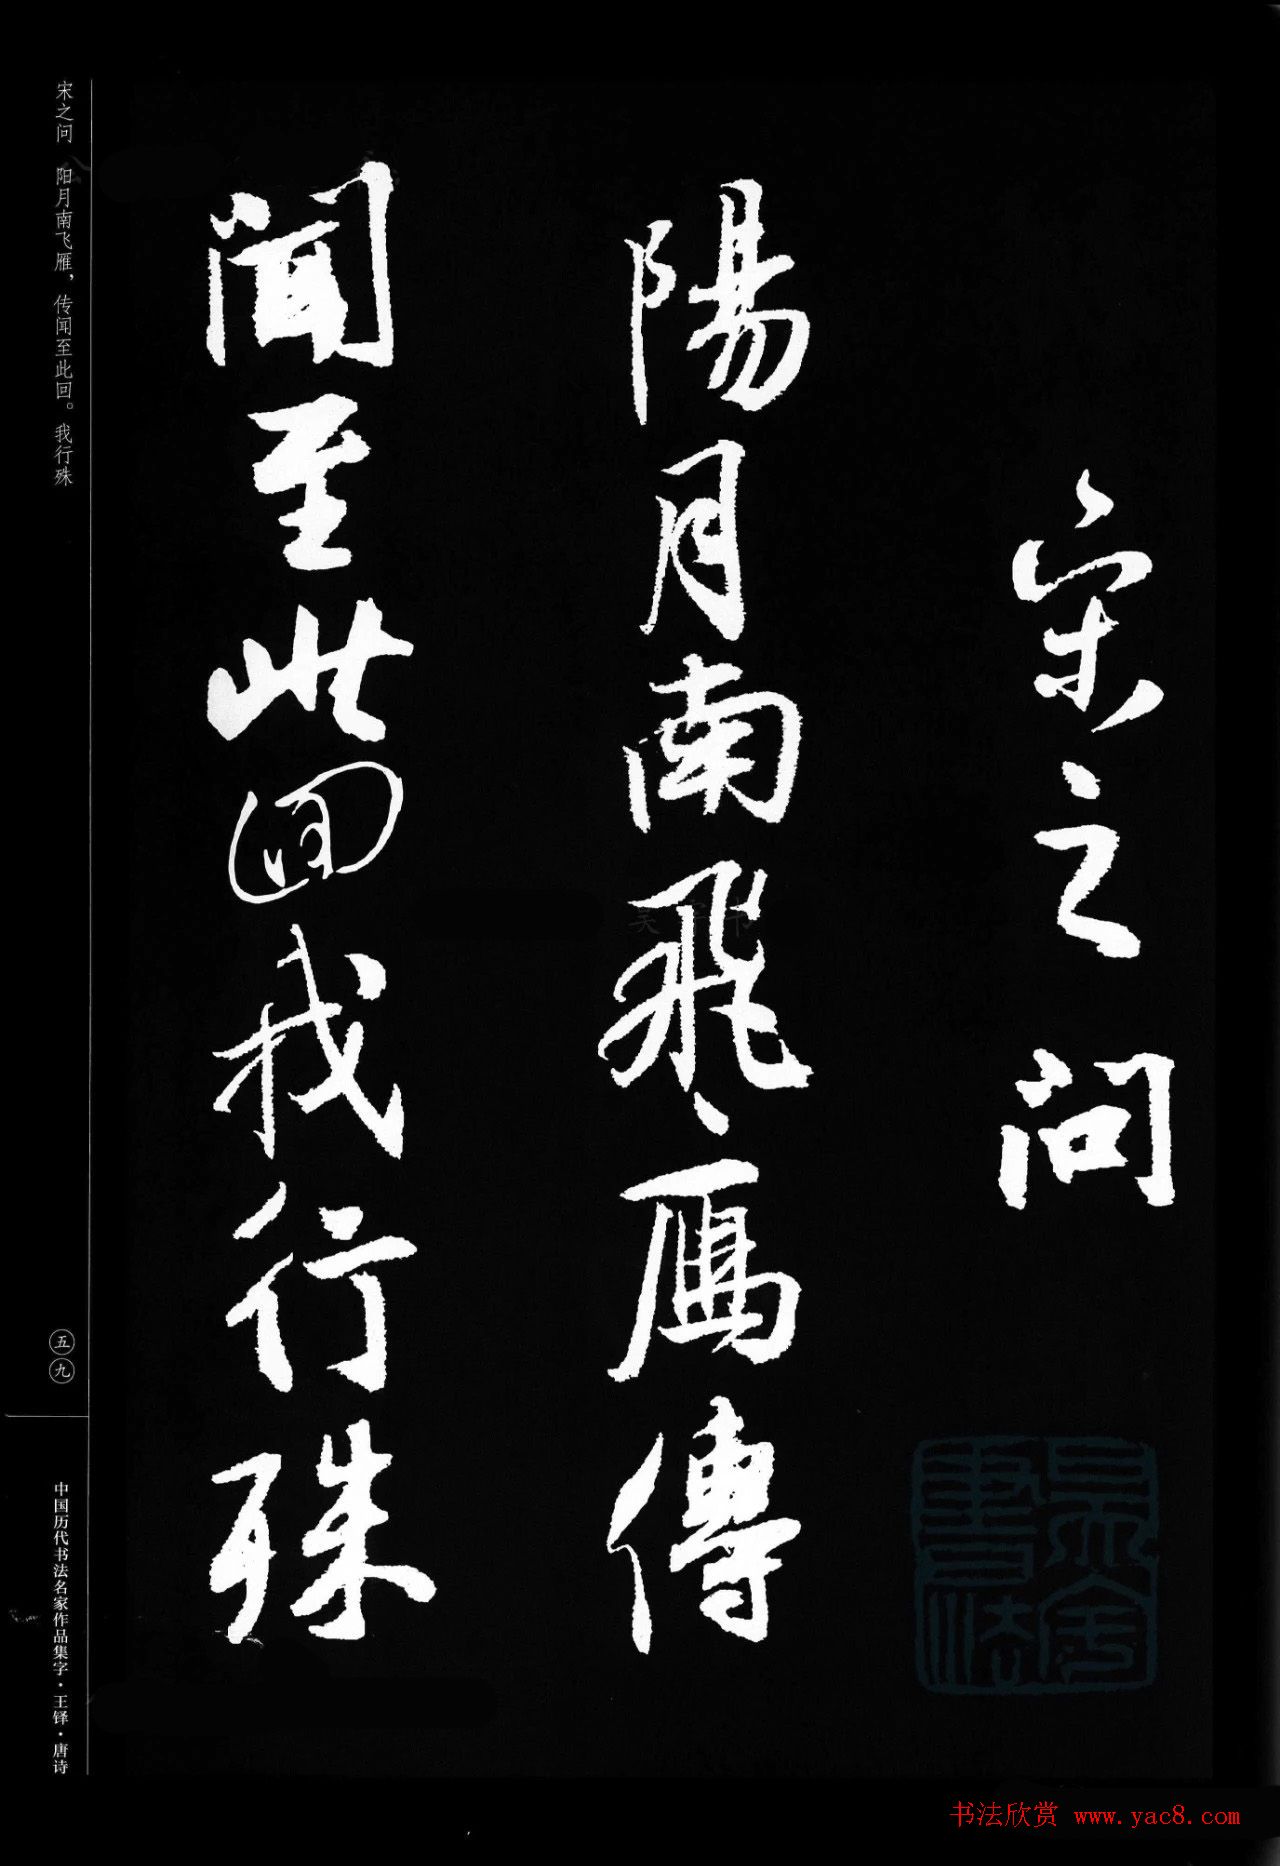 宋之问
陽月南飛雁傳
聞至此回我行殊
宋之问 阳月南飞雁，传闻至此回。我行殊
五九
中国历代书法名家作品集字·王铎·唐诗
书法欣赏 www.yac8.com